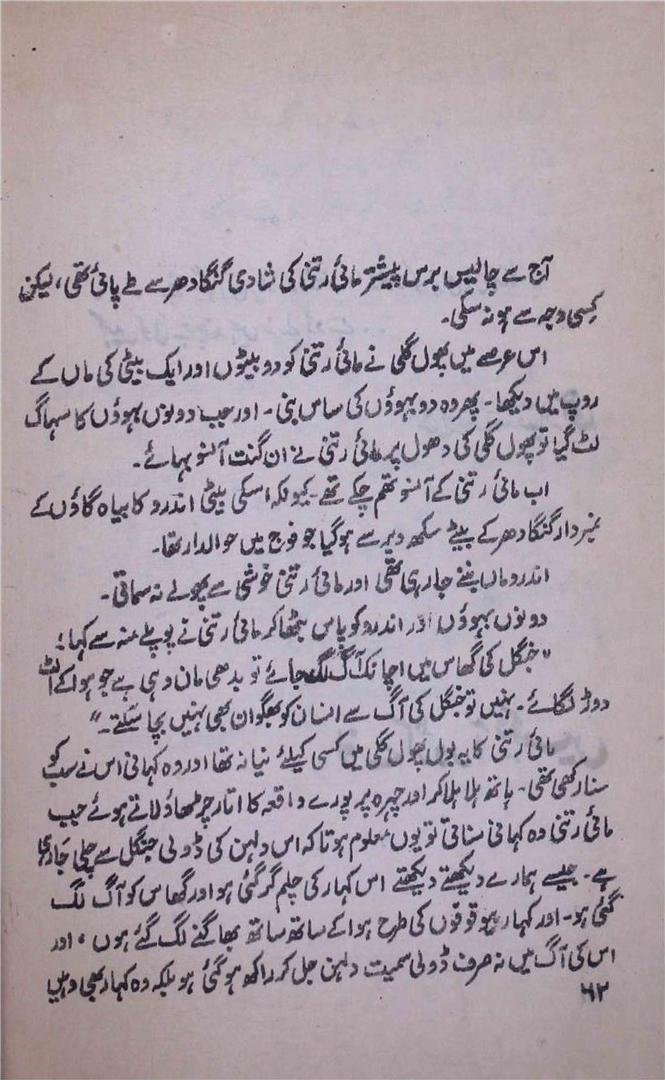 آج سے چالیس برس پیشتر مائی رتنی کی شادی گنگا دھر سے طے پائی تھی، لیکن
کسی وجہ سے ہو نہ سکی۔
اس عرصے میں پھول گلی نے مائی رتنی کو دو بیٹوں اور ایک بیٹی کی ماں کے
روپ میں دیکھا۔ پھر وہ دو بہوؤں کی ساس بنی۔ اور جب دونوں بہوؤں کا سہاگ
لٹ گیا تو پھول گلی کی دھول پر مائی رتنی نے ان گنت آنسو بہائے۔
اب مائی رتنی کے آنسو تھم چکے تھے۔ کیونکہ اسکی بیٹی اندرو کا بیاہ گاؤں کے
نمبردار گنگا دھر کے بیٹے سکھ دیر سے ہو گیا جو فوج میں حوالدار تھا۔
اندرو ماں بننے جا رہی تھی اور مائی رتنی خوشی سے پھولے نہ سماتی۔
دونوں بہوؤں اور اندرو کو پاس بٹھا کر مائی رتنی نے پوپلے منہ سے کہا؛
"جنگل کی گھاس میں اچانک آگ لگ جائے تو بدھی مان وہی ہے جو ہوا کے الٹ
دوڑ لگائے۔ نہیں تو جنگل کی آگ سے انسان کو بھگوان بھی نہیں بچا سکتے۔"
مائی رتنی کا یہ بول پھول گلی میں کسی کیلئے نیا نہ تھا اور وہ کہانی اس نے سب کو
سنا رکھی تھی۔ ہاتھ ہلا ہلا کر اور چہرہ پر پورے واقعہ کا اتار چڑھاؤ لاتے ہوئے جب
مائی رتنی وہ کہانی سناتی تو یوں معلوم ہوتا کہ اس دلہن کی ڈولی جنگل سے چلی جا رہی
ہے۔ جیسے ہمارے دیکھتے دیکھتے اس کہار کی چلم گر گئی ہو اور گھاس کو آگ لگ
گئی ہو۔ اور کہار بیوقوفوں کی طرح ہوا کے ساتھ ساتھ بھاگنے لگ گئے ہوں، اور
اس کی آگ میں نہ صرف ڈولی سمیت دلہن جل کر راکھ ہو گئی ہو بلکہ وہ کہار بھی وہیں
۶۲